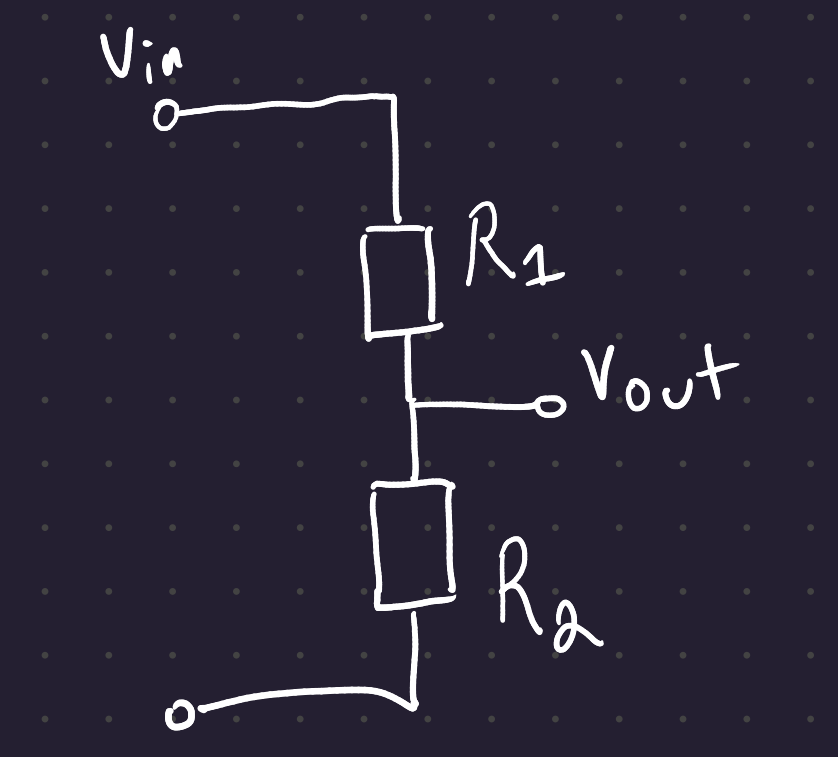 Vin
R1
Vout
R2